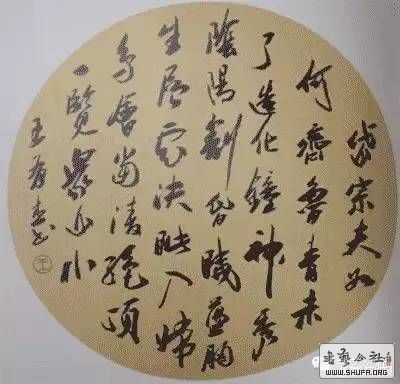 岱宗夫如
何齊魯青未
了造化鐘神秀
陰陽割昏曉盪胸
生層雲決眦入歸
鳥會當凌絕頂
一覽眾山小
王
书艺公社
WWW.SHUFA.ORG